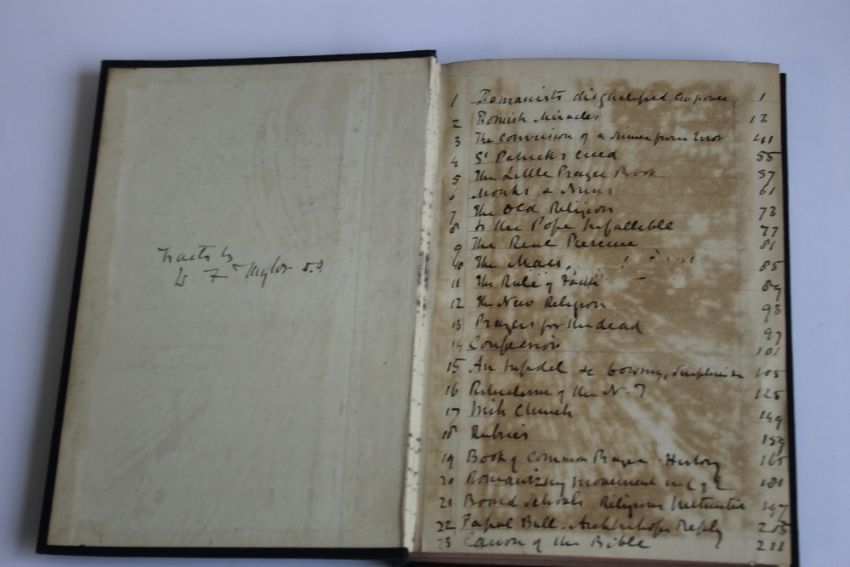 Tracts by
W F Taylor D.D.
1 Romanists disqualified for power 1
2 Romish Miracles 13
3 The Conversion of a Sinner from Error 41
4 St Patrick's Creed 55
5 The Little Prayer Book 57
6 Monks & Nuns 61
7 The Old Religion 73
8 Is the Pope Infallible 77
9 The Real Presence 81
10 The Mass 85
11 The Rule of Faith 89
12 The New Religion 93
13 Prayers for the dead 97
14 Confession 101
15 An Infidel & 105
16 Ritualism of the N.T 125
17 Irish Church 149
18 Rubrics 159
19 Book of Common Prayer - History 165
20 Romanizing Movement in C of E 181
21 Board Schools Religious Instruction 197
22 Papal Bull - Archbishops Reply 205
23 Canon of the Bible 211